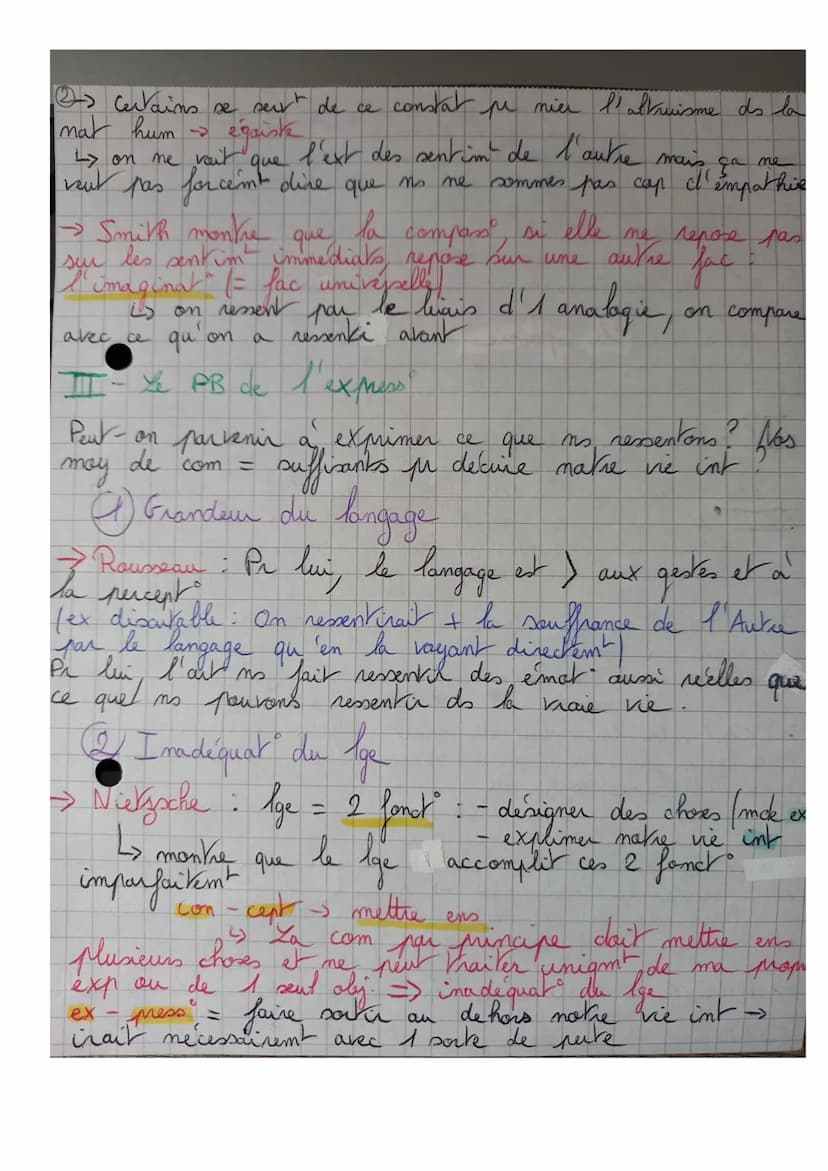 ② → Certains se servt de ce constat pr nier l'altruisme ds la
nat hum → égoiste
↳ on ne voit que l'ext des sentimt de l'autre mais ça ne
veut pas forcémt dire que ns ne sommes pas cap d'empathie
→ Smith montre que la compass°, si elle ne repose pas
sur les sentimt immédiats, repose sur une autre fac :
l'imaginat° (= fac universelle)
↳ on ressent par le biais d'1 analogie, on compare
avec ce qu'on a ressenti avant
III - Le PB de l'express°
Peut-on parvenir à exprimer ce que ns ressentons ? Nos
moy de com = suffisants pr décrire notre vie int ?
① Grandeur du langage
→ Rousseau : Pr lui, le langage est > aux gestes et à
la percept°
(ex discutable : On ressentirait + la souffrance de l'Autre
par le langage qu'en la voyant directemt)
Pr lui, l'art ns fait ressentir des émot° aussi réelles que
ce quel ns pouvons ressentir ds la vraie vie.
② Inadéquat° du lge
→ Nietzsche : lge = 2 fonct° : - désigner des choses (mde ex
- exprimer notre vie int
↳ montre que le lge accomplit ces 2 fonct°
imparfaitemt
con - cept → mettre ens
↳ La com par principe doit mettre ens
plusieurs choses et ne peut traiter uniqmt de ma prop
exp ou de 1 seul obj. => inadéquat° du lge
ex - press° = faire sortir au dehors notre vie int →
irait nécessairemt avec 1 sorte de perte